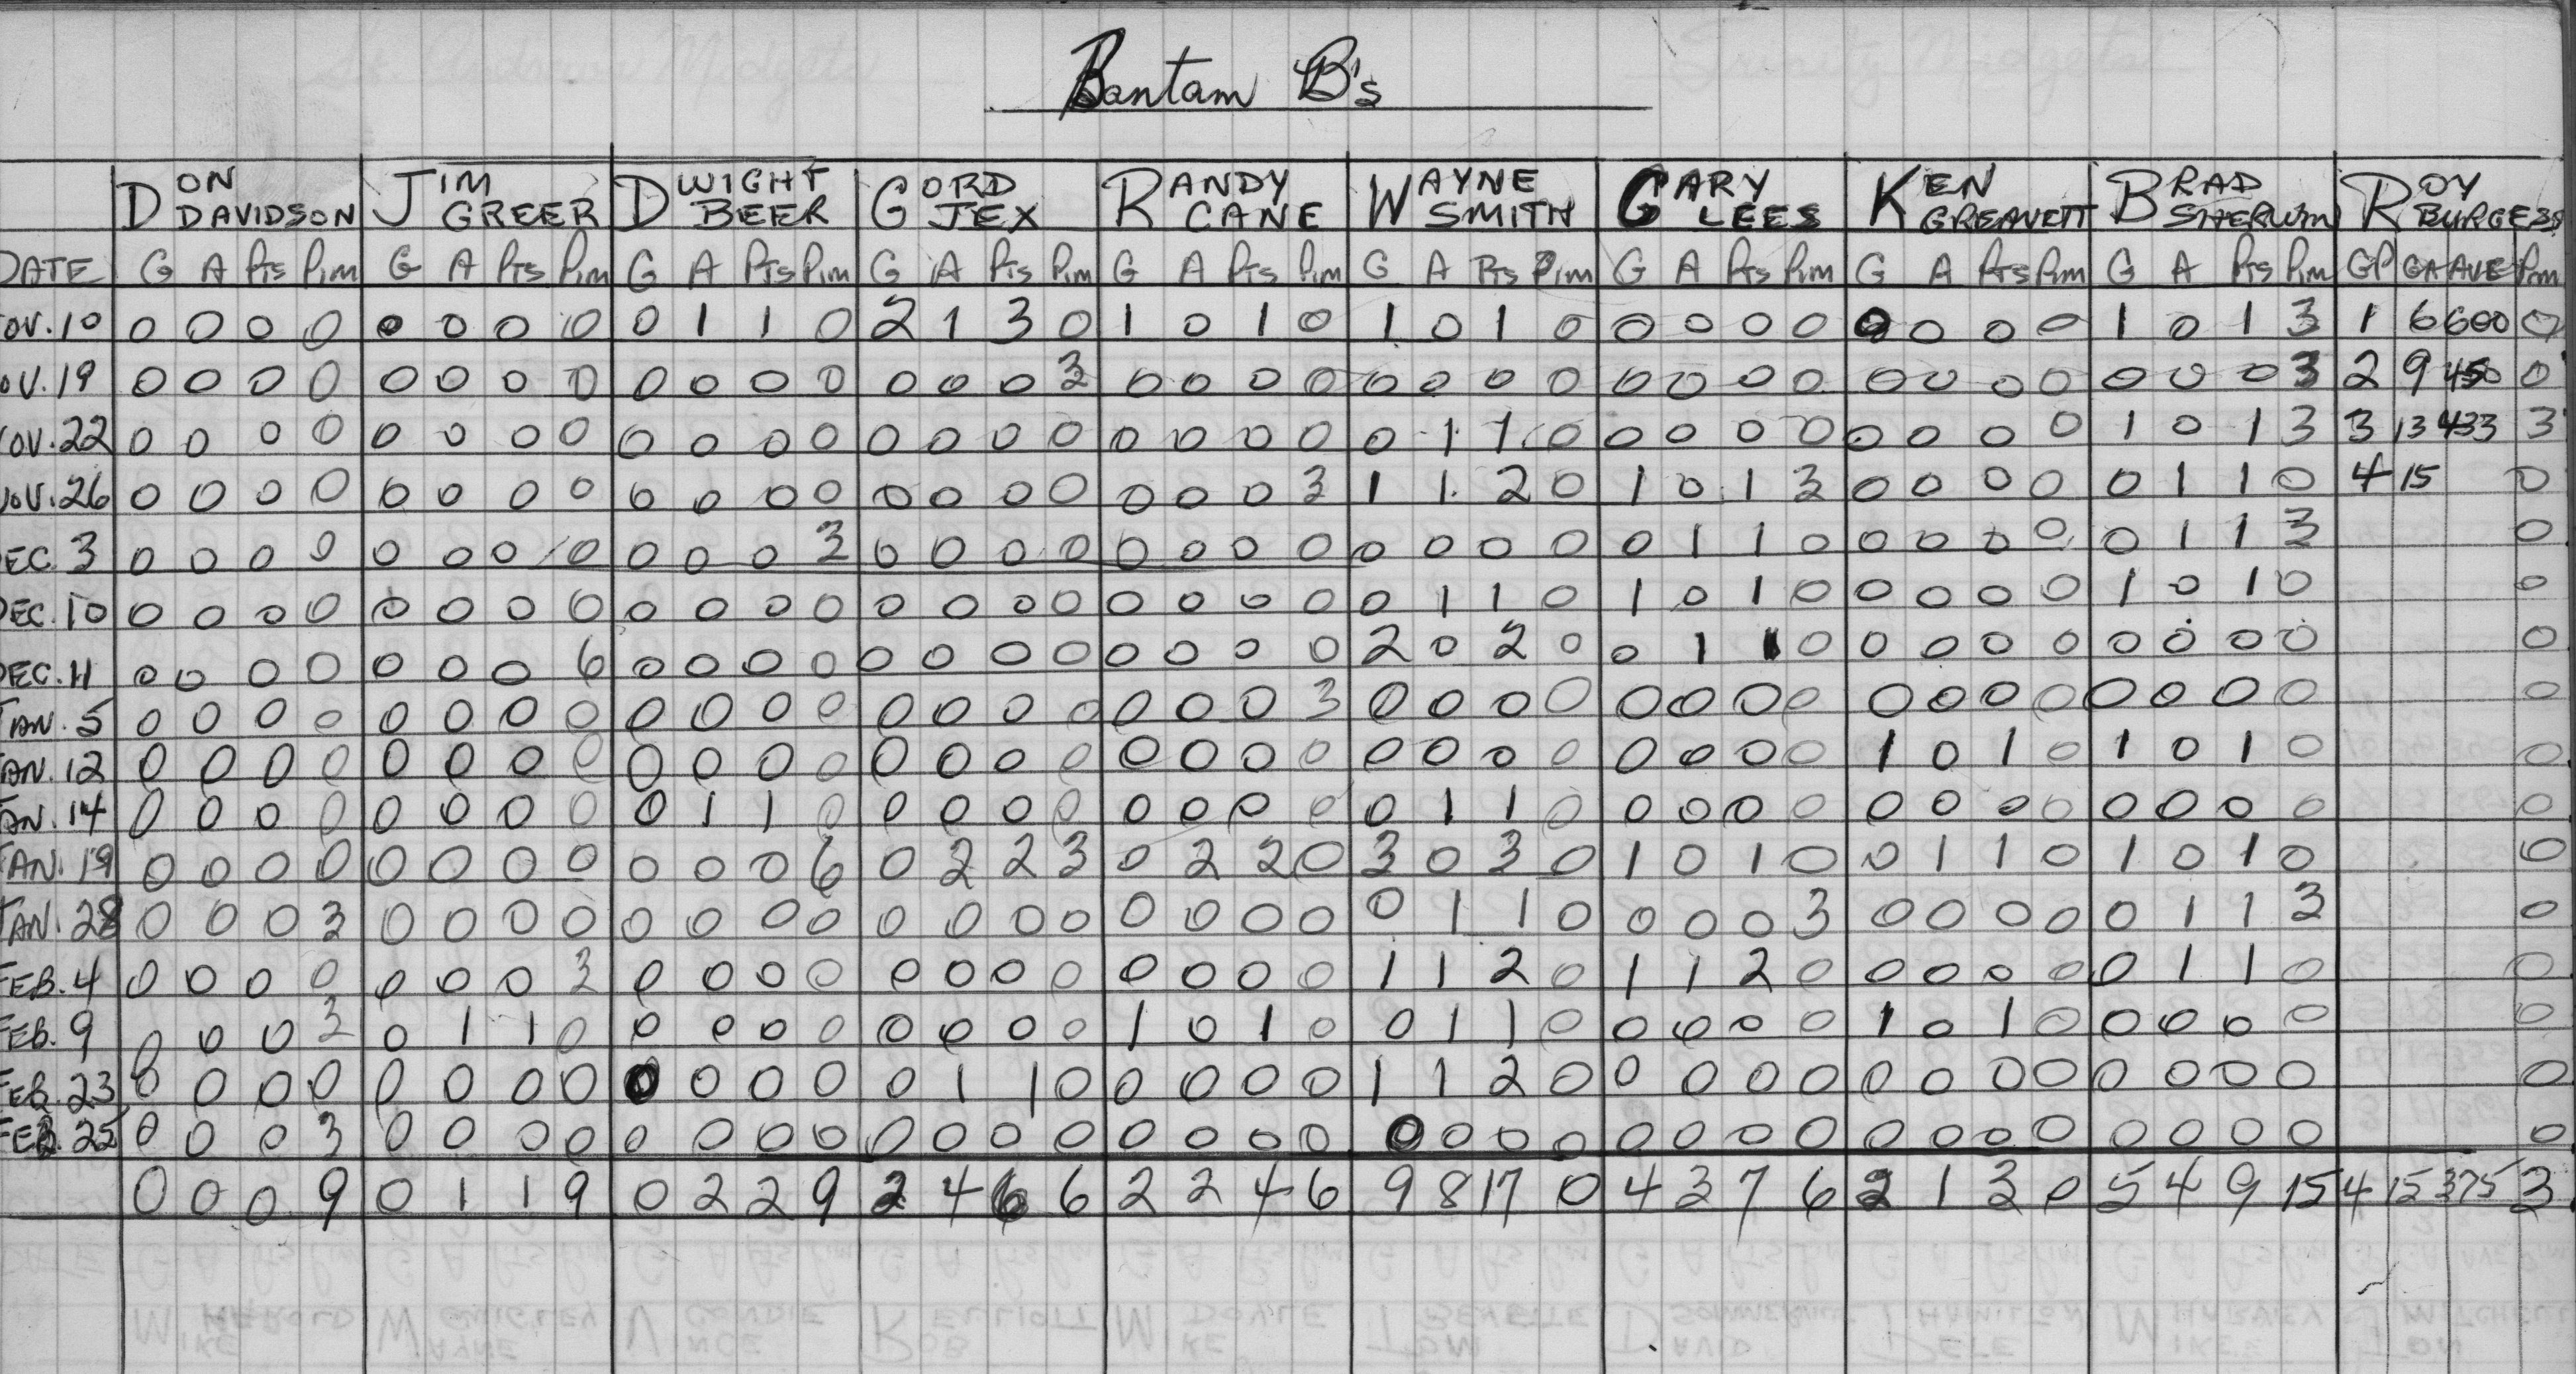 Bantam B's
DON DAVIDSON JIM GREER DWIGHT BEER GORD JEX RANDY CANE WAYNE SMITH GARY LEES KEN GREAVETT BRAD SHERWIN ROY BURGESS
DATE G A Pts Pim G A Pts Pim G A Pts Pim G A Pts Pim G A Pts Pim G A Pts Pim G A Pts Pim G A Pts Pim G A Pts Pim GP GA AVE Pim
OV. 10 0 0 0 0 0 0 0 0 0 1 1 0 2 1 3 0 1 0 1 0 1 0 1 0 0 0 0 0 0 0 0 0 1 0 1 3 1 6 600 0
OV. 19 0 0 0 0 0 0 0 0 0 0 0 0 0 0 0 3 0 0 0 0 0 0 0 0 0 0 0 0 0 0 0 0 0 0 0 3 2 9 450 0
OV. 22 0 0 0 0 0 0 0 0 0 0 0 0 0 0 0 0 0 0 0 0 0 1 1 0 0 0 0 0 0 0 0 0 1 0 1 3 3 13 433 3
NOV. 26 0 0 0 0 0 0 0 0 0 0 0 0 0 0 0 0 0 0 0 3 1 1 2 0 1 0 1 3 0 0 0 0 0 1 1 0 4 15 0
EC. 3 0 0 0 0 0 0 0 0 0 0 0 3 0 0 0 0 0 0 0 0 0 0 0 0 0 1 1 0 0 0 0 0 0 1 1 3 0
DEC. 10 0 0 0 0 0 0 0 0 0 0 0 0 0 0 0 0 0 0 0 0 0 1 1 0 1 0 1 0 0 0 0 0 1 0 1 0 0
DEC. 11 0 0 0 0 0 0 0 6 0 0 0 0 0 0 0 0 0 0 0 0 2 0 2 0 0 1 1 0 0 0 0 0 0 0 0 0 0
JAN. 5 0 0 0 0 0 0 0 0 0 0 0 0 0 0 0 0 0 0 0 3 0 0 0 0 0 0 0 0 0 0 0 0 0 0 0 0 0
AN. 12 0 0 0 0 0 0 0 0 0 0 0 0 0 0 0 0 0 0 0 0 0 0 0 0 0 0 0 0 1 0 1 0 1 0 1 0 0
JAN. 14 0 0 0 0 0 0 0 0 0 1 1 0 0 0 0 0 0 0 0 0 0 1 1 0 0 0 0 0 0 0 0 0 0 0 0 0 0
JAN. 19 0 0 0 0 0 0 0 0 0 0 0 6 0 2 2 3 0 2 2 0 3 0 3 0 1 0 1 0 0 1 1 0 1 0 1 0 0
JAN. 28 0 0 0 3 0 0 0 0 0 0 0 0 0 0 0 0 0 0 0 0 0 1 1 0 0 0 0 3 0 0 0 0 0 1 1 3 0
FEB. 4 0 0 0 0 0 0 0 3 0 0 0 0 0 0 0 0 0 0 0 0 1 1 2 0 1 1 2 0 0 0 0 0 0 1 1 0 0
FEB. 9 0 0 0 3 0 1 1 0 0 0 0 0 0 0 0 0 1 0 1 0 0 1 1 0 0 0 0 0 1 0 1 0 0 0 0 0 0
FEB. 23 0 0 0 0 0 0 0 0 0 0 0 0 0 1 1 0 0 0 0 0 1 1 2 0 0 0 0 0 0 0 0 0 0 0 0 0 0
FEB. 25 0 0 0 3 0 0 0 0 0 0 0 0 0 0 0 0 0 0 0 0 0 0 0 0 0 0 0 0 0 0 0 0 0 0 0 0 0
0 0 0 9 0 1 1 9 0 2 2 9 2 4 6 6 2 2 4 6 9 8 17 0 4 3 7 6 2 1 3 0 5 4 9 15 4 15 375 3